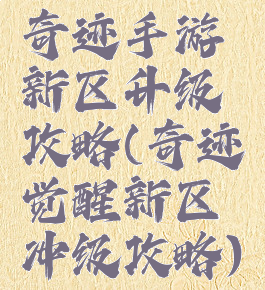 奇迹手游
新区升级
攻略(奇迹
觉醒新区
冲级攻略)